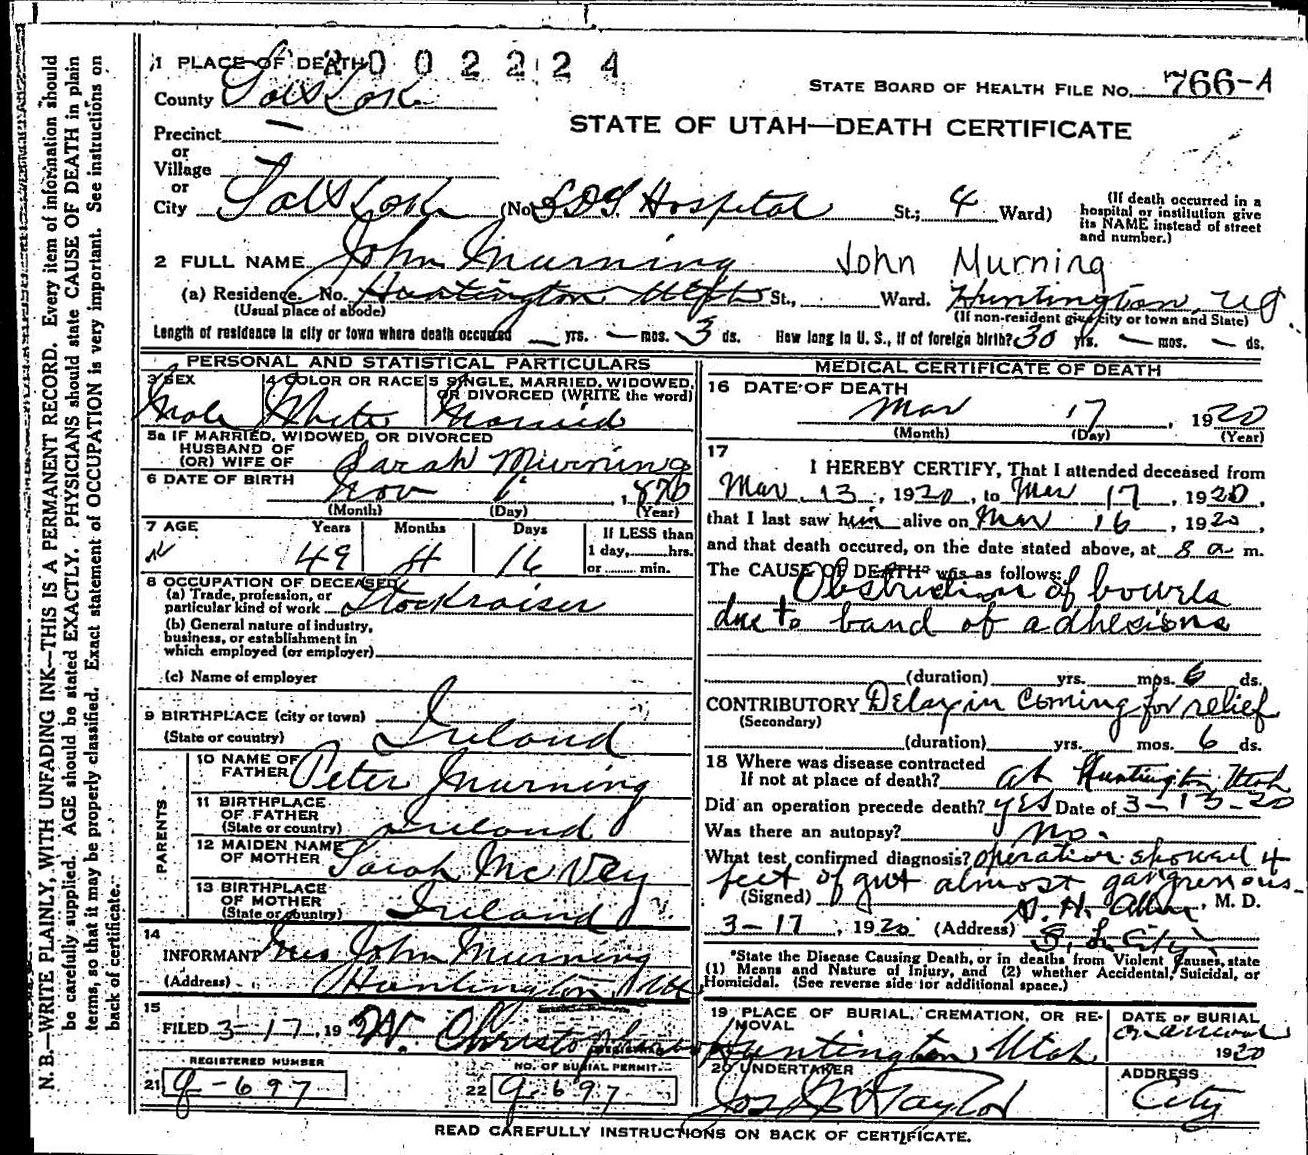 1 PLACE OF DEATH 2002224
STATE BOARD OF HEALTH FILE No. 766-A
County Salt Lake
STATE OF UTAH—DEATH CERTIFICATE
Precinct
or
Village
or
City Salt Lake (No. LDS Hospital St.; 4 Ward)
(If death occurred in a hospital or institution give its NAME instead of street and number.)
2 FULL NAME John Murning John Murning
(a) Residence. No. Huntington Utah St., Ward. Huntington, Ut
(Usual place of abode) (If non-resident give city or town and State)
Length of residence in city or town where death occured — yrs. — mos. 3 ds. How long in U. S., if of foreign birth? 30 yrs. — mos. — ds.
PERSONAL AND STATISTICAL PARTICULARS
3 SEX Male
4 COLOR OR RACE White
5 SINGLE, MARRIED, WIDOWED, OR DIVORCED (WRITE the word) Married
5a IF MARRIED, WIDOWED, OR DIVORCED
HUSBAND OF
(OR) WIFE OF Sarah Murning
6 DATE OF BIRTH Nov 1 1,870
(Month) (Day) (Year)
7 AGE Years Months Days If LESS than
49 4 16 1 day,......hrs.
or ....... min.
8 OCCUPATION OF DECEASED
(a) Trade, profession, or
particular kind of work Stockraiser
(b) General nature of industry,
business, or establishment in
which employed (or employer)
(c) Name of employer
9 BIRTHPLACE (city or town)
(State or country) Ireland
PARENTS
10 NAME OF FATHER Peter Murning
11 BIRTHPLACE OF FATHER (State or country) Ireland
12 MAIDEN NAME OF MOTHER Sarah McVey
13 BIRTHPLACE OF MOTHER (State or country) Ireland
14
INFORMANT Mrs John Murning
(Address) Huntington, Utah
15
FILED 3-17, 19 W. Christopherson
REGISTRAR
REGISTERED NUMBER NO. OF BURIAL PERMIT
21 9-697 22 9-697
MEDICAL CERTIFICATE OF DEATH
16 DATE OF DEATH
Mar 17, 1920
(Month) (Day) (Year)
17
I HEREBY CERTIFY, That I attended deceased from
Mar 13, 1920, to Mar 17, 1920,
that I last saw him alive on Mar 16, 1920,
and that death occured, on the date stated above, at 8 a m.
The CAUSE OF DEATH* was as follows:
Obstruction of bowels
due to band of adhesions
(duration) yrs. mos. 6 ds.
CONTRIBUTORY Delay in coming for relief
(Secondary)
(duration) yrs. mos. 6 ds.
18 Where was disease contracted
If not at place of death? at Huntington Utah
Did an operation precede death? yes Date of 3-13-20
Was there an autopsy? no.
What test confirmed diagnosis? operation showed 4
feet of gut almost gangrenous
(Signed) S. H. Allen, M. D.
3-17, 1920 (Address) S. L. City
*State the Disease Causing Death, or in deaths from Violent Causes, state
(1) Means and Nature of Injury, and (2) whether Accidental, Suicidal, or
Homicidal. (See reverse side for additional space.)
19 PLACE OF BURIAL, CREMATION, OR REMOVAL DATE OF BURIAL
Huntington, Utah 1920
20 UNDERTAKER ADDRESS
Jos Wm Taylor City
READ CAREFULLY INSTRUCTIONS ON BACK OF CERTIFICATE.
N. B.—WRITE PLAINLY, WITH UNFADING INK—THIS IS A PERMANENT RECORD. Every item of information should
be carefully supplied. AGE should be stated EXACTLY. PHYSICIANS should state CAUSE OF DEATH in plain
terms, so that it may be properly classified. Exact statement of OCCUPATION is very important. See instructions on
back of certificate.